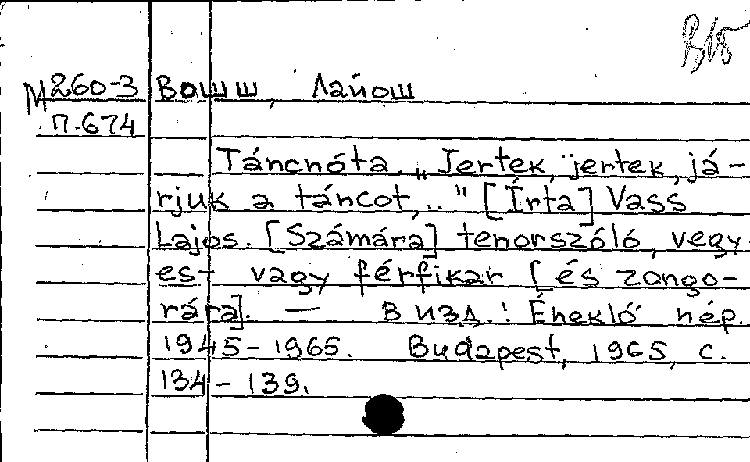 М 260-3 Вошш, Лайош
П.674
Táncnóta. „Jertek, jertek, já-
rjuk a táncot,.." [Írta] Vass
Lajos. [Számára] tenorszóló, vegy
es- vagy férfikar [és zongo-
rára]. — В изд.: Éneklő nép.
1945-1965. Budapest, 1965, с.
134-139.